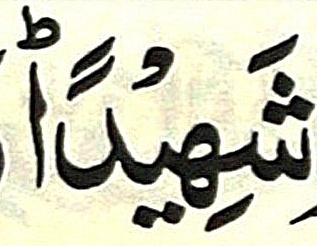 شَهِيْدًاؕ